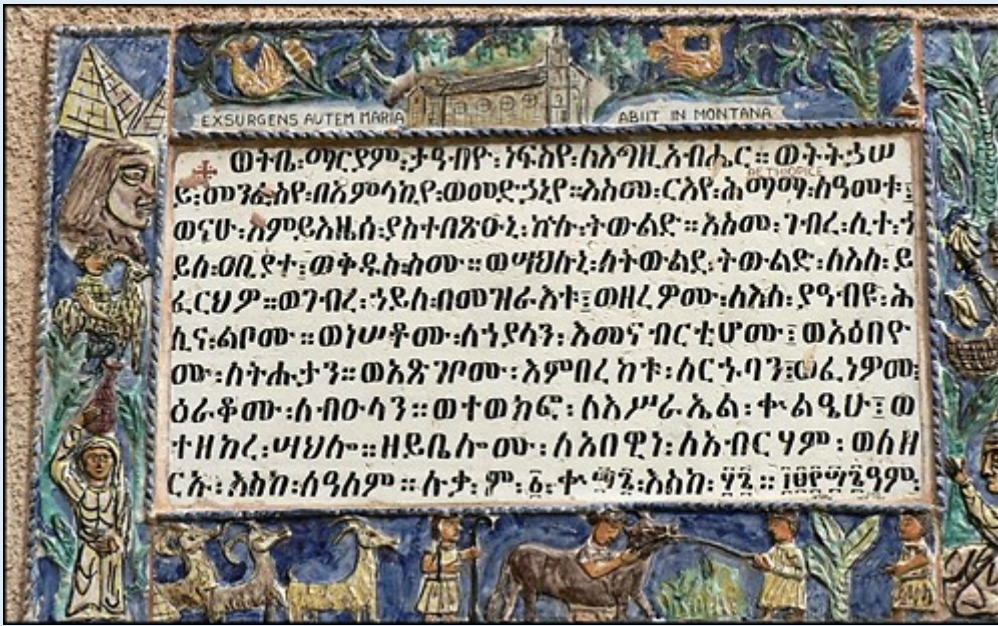 EXSURGENS AUTEM MARIA ABIIT IN MONTANA
ወትቤ፡ማርያም፡ታዓብዮ፡ነፍስየ፡ለእግዚአብሔር። ወትትኃሠ
AETHIOPICE
ይ፡መንፈስየ፡በአምላኪየ፡ወመድኃኒየ።እስመ፡ርእየ፡ሕማማ፡ለዓመቱ፤
ወናሁ፡እምይእዜሰ፡ያስተበጽዑኒ፡ኵሉ፡ትውልድ።እስመ፡ገብረ፡ሊተ፡ኃ
ይለ፡ዐቢያተ፡ወቅዱስ፡ስሙ።ወሣህሉኒ፡ለትውልደ፡ትውልድ፡ለእለ፡ይ
ፈርህዎ።ወገብረ፡ኃይለ፡በመዝራእቱ፤ወዘረዎሙ፡ለእለ፡ያዓብዩ፡ሕ
ሊና፡ልቦሙ።ወነሠቶሙ፡ለኀያላን፡እመናብርቲሆሙ፤ወአዕበዮ
ሙ፡ለትሑታን።ወአጽገቦሙ፡እምበረከቱ፡ለርኁባን፤ወፈነዎሙ፡
ዕራቆሙ፡ለብዑላን።ወተወክፎ፡ለእሥራኤል፡ቍልዔሁ፤ወ
ተዘከረ፡ሣህሎ።ዘይቤሎሙ፡ለአበዊነ፡ለአብርሃም፡ወለዘ
ርኡ፡እስከ፡ለዓለም።ሉቃ፡ም፡፩፡ቍ፡፵፮፡እስከ፡